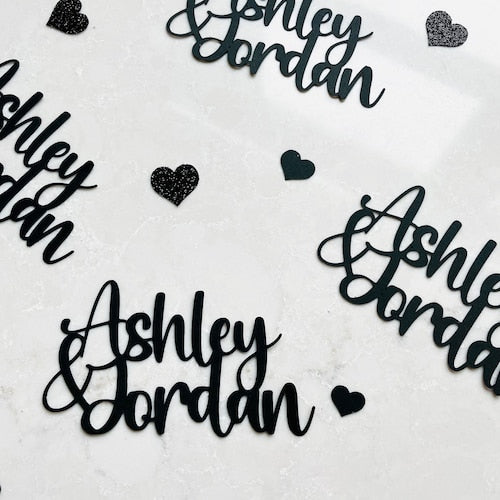 Ashley
&Jordan
shley
rdan
Ashle
&Jorda
Ashley
&Jordan